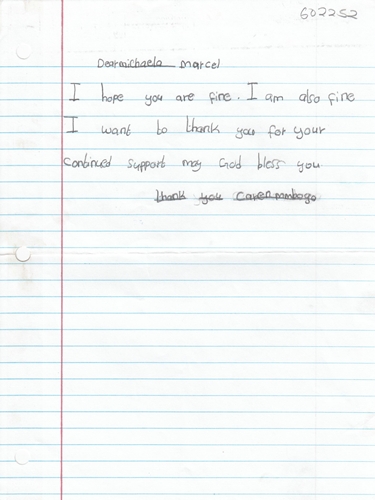 602252
Dearmichaela Marcel
I hope you are fine. I am also fine
I want to thank you for your
continued support may God bless you
thank you Caren nambogo